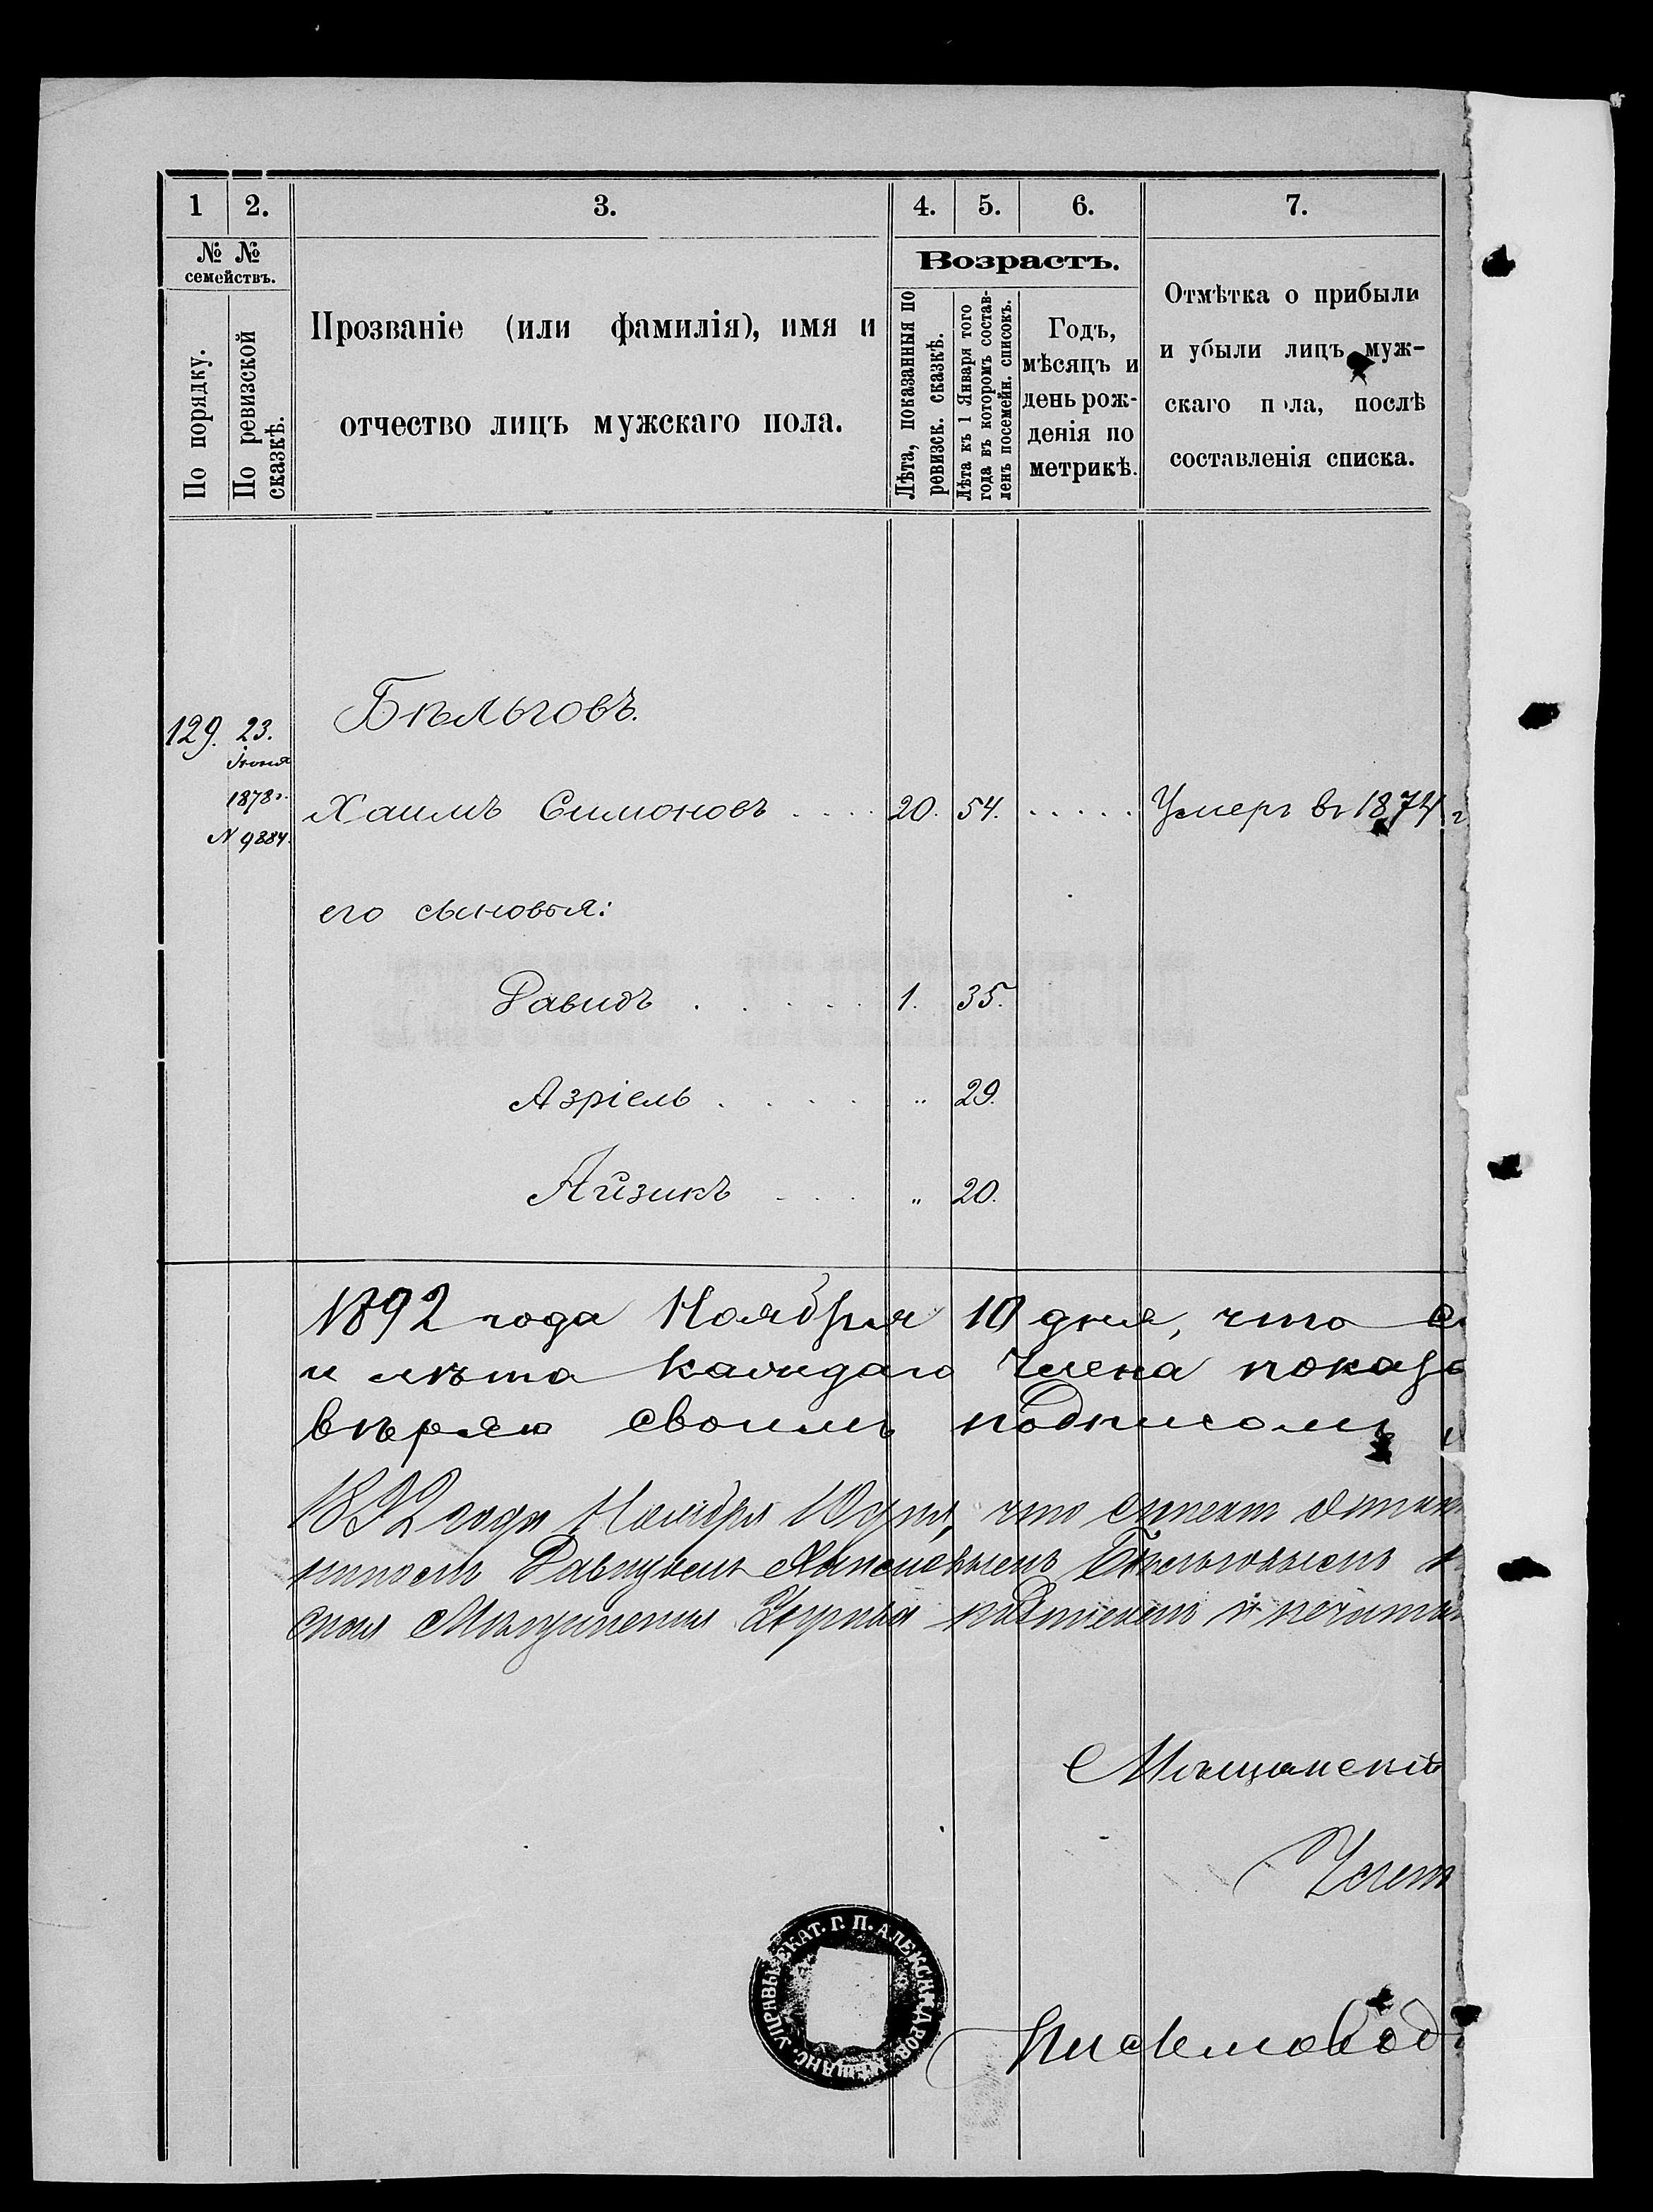 1 2. 3. 4. 5. 6. 7.
№ №
семействъ.
По порядку.
По ревизской
сказкѣ.
Прозваніе (или фамилія), имя и
отчество лицъ мужскаго пола.
Возрастъ.
Лѣта, показанныя по
ревизск. сказкѣ.
Лѣта къ 1 Января того
года въ которомъ состав-
ленъ посемейн. списокъ.
Годъ,
мѣсяцъ и
день рож-
денія по
метрикѣ.
Отмѣтка о прибыли
и убыли лицъ муж-
скаго пола, послѣ
составленія списка.
Бѣльговъ.
129. 23.
Іюня
1878 г.
N 9884.
Хаимъ Симоновъ . . . . 20. 54. . . . . . Умеръ въ 1874 г
его сыновья:
Давидъ . . . . . 1. 35.
Азріель . . . . . „ 29.
Айзикъ . . . „ 20.
1892 года Ноября 10 дня, что
и лѣта каждаго Члена показа
вѣряю своимъ подписомъ и
1892 года Ноября 10 дня, что
Давидомъ Хаимовымъ Бѣльговымъ
Мѣщанская Управа подписомъ и печатью
Мѣщанскій
Писмовод
УПРАВЫ ЕКАТ. Г. П. АЛЕКСАНДРОВ. МѢЩАНС.